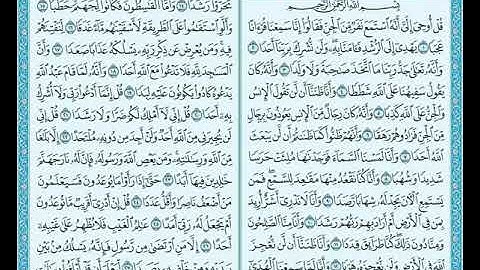 بِسْمِ ٱللَّهِ ٱلرَّحْمَٰنِ ٱلرَّحِيمِ
قُلْ أُوحِيَ إِلَيَّ أَنَّهُ ٱسْتَمَعَ نَفَرٌ مِّنَ ٱلْجِنِّ فَقَالُوٓا۟ إِنَّا سَمِعْنَا قُرْءَانًا
عَجَبًا ١ يَهْدِىٓ إِلَى ٱلرُّشْدِ فَـَٔامَنَّا بِهِۦ وَلَن نُّشْرِكَ بِرَبِّنَآ أَحَدًا ٢
وَأَنَّهُۥ تَعَٰلَىٰ جَدُّ رَبِّنَا مَا ٱتَّخَذَ صَٰحِبَةً وَلَا وَلَدًا ٣ وَأَنَّهُۥ كَانَ
يَقُولُ سَفِيهُنَا عَلَى ٱللَّهِ شَطَطًا ٤ وَأَنَّا ظَنَنَّآ أَن لَّن تَقُولَ ٱلْإِنسُ
وَٱلْجِنُّ عَلَى ٱللَّهِ كَذِبًا ٥ وَأَنَّهُۥ كَانَ رِجَالٌ مِّنَ ٱلْإِنسِ يَعُوذُونَ بِرِجَالٍ
مِّنَ ٱلْجِنِّ فَزَادُوهُمْ رَهَقًا ٦ وَأَنَّهُمْ ظَنُّوا۟ كَمَا ظَنَنتُمْ أَن لَّن يَبْعَثَ
ٱللَّهُ أَحَدًا ٧ وَأَنَّا لَمَسْنَا ٱلسَّمَآءَ فَوَجَدْنَٰهَا مُلِئَتْ حَرَسًا
شَدِيدًا وَشُهُبًا ٨ وَأَنَّا كُنَّا نَقْعُدُ مِنْهَا مَقَٰعِدَ لِلسَّمْعِ فَمَن
يَسْتَمِعِ ٱلْـَٔانَ يَجِدْ لَهُۥ شِهَابًا رَّصَدًا ٩ وَأَنَّا لَا نَدْرِىٓ أَشَرٌّ أُرِيدَ
بِمَن فِى ٱلْأَرْضِ أَمْ أَرَادَ بِهِمْ رَبُّهُمْ رَشَدًا ١٠ وَأَنَّا مِنَّا ٱلصَّٰلِحُونَ
وَمِنَّا دُونَ ذَٰلِكَ كُنَّا طَرَآئِقَ قِدَدًا ١١ وَأَنَّا ظَنَنَّآ أَن لَّن نُّعْجِزَ
ٱللَّهَ فِى ٱلْأَرْضِ وَلَن نُّعْجِزَهُۥ هَرَبًا ١٢ وَأَنَّا لَمَّا سَمِعْنَا ٱلْهُدَىٰٓ
تَحَرَّوْا۟ رَشَدًا ١٤ وَأَمَّا ٱلْقَٰسِطُونَ فَكَانُوا۟ لِجَهَنَّمَ حَطَبًا ١٥
وَأَلَّوِ ٱسْتَقَٰمُوا۟ عَلَى ٱلطَّرِيقَةِ لَأَسْقَيْنَٰهُم مَّآءً غَدَقًا ١٦
لِّنَفْتِنَهُمْ فِيهِ وَمَن يُعْرِضْ عَن ذِكْرِ رَبِّهِۦ يَسْلُكْهُ عَذَابًا صَعَدًا ١٧ وَأَنَّ
ٱلْمَسَٰجِدَ لِلَّهِ فَلَا تَدْعُوا۟ مَعَ ٱللَّهِ أَحَدًا ١٨ وَأَنَّهُۥ لَمَّا قَامَ عَبْدُ ٱللَّهِ
يَدْعُوهُ كَادُوا۟ يَكُونُونَ عَلَيْهِ لِبَدًا ١٩ قُلْ إِنَّمَآ أَدْعُوا۟ رَبِّى وَلَآ أُشْرِكُ
بِهِۦٓ أَحَدًا ٢٠ قُلْ إِنِّى لَآ أَمْلِكُ لَكُمْ ضَرًّا وَلَا رَشَدًا ٢١ قُلْ إِنِّى
لَن يُجِيرَنِى مِنَ ٱللَّهِ أَحَدٌ وَلَنْ أَجِدَ مِن دُونِهِۦ مُلْتَحَدًا ٢٢ إِلَّا بَلَٰغًا
مِّنَ ٱللَّهِ وَرِسَٰلَٰتِهِۦ وَمَن يَعْصِ ٱللَّهَ وَرَسُولَهُۥ فَإِنَّ لَهُۥ نَارَ جَهَنَّمَ
خَٰلِدِينَ فِيهَآ أَبَدًا ٢٣ حَتَّىٰٓ إِذَا رَأَوْا۟ مَا يُوعَدُونَ فَسَيَعْلَمُونَ
مَنْ أَضْعَفُ نَاصِرًا وَأَقَلُّ عَدَدًا ٢٤ قُلْ إِنْ أَدْرِىٓ أَقَرِيبٌ مَّا تُوعَدُونَ
أَمْ يَجْعَلُ لَهُۥ رَبِّىٓ أَمَدًا ٢٥ عَٰلِمُ ٱلْغَيْبِ فَلَا يُظْهِرُ عَلَىٰ غَيْبِهِۦٓ
أَحَدًا ٢٦ إِلَّا مَنِ ٱرْتَضَىٰ مِن رَّسُولٍ فَإِنَّهُۥ يَسْلُكُ مِنۢ بَيْنِ